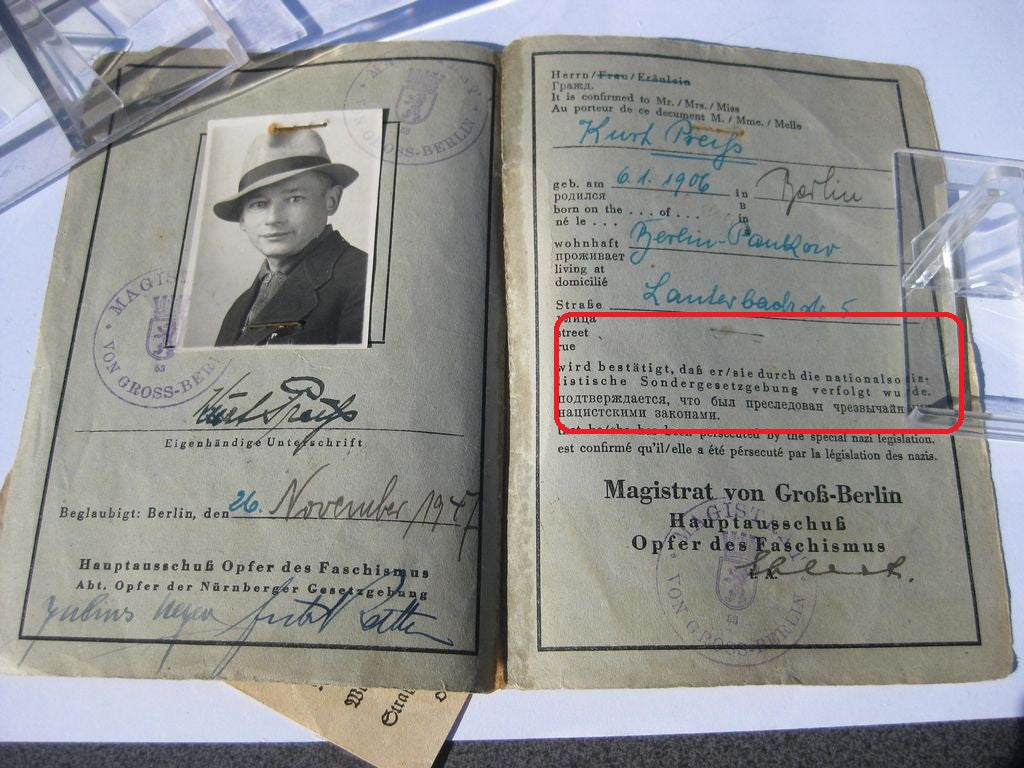 MAGISTRAT
VON GROSS-BERLIN
53
MAGIS
VON GROSS-BER
53
Kurt Preiß
Eigenhändige Unterschrift
Beglaubigt: Berlin, den 26. November 1947
Hauptausschuß Opfer des Faschismus
Abt. Opfer der Nürnberger Gesetzgebung
Julius Meyer
Herrn/Frau/Fräulein
Гражд.
It is confirmed to Mr./Mrs./Miss
Au porteur de ce document M./Mme./Melle
Kurt Preiß
geb. am 6.1.1906 in Berlin
родился в
born on the ... of ... in
né le ... à
wohnhaft Berlin-Pankow
проживает
living at
domicilié
Straße
улица
street
rue
wird bestätigt, daß er/sie durch die nationalsozia-
listische Sondergesetzgebung verfolgt wurde.
подтверждается, что был преследован чрезвычайн
нацистскими законами.
that he/she has been persecuted by the special nazi legislation.
est confirmé qu'il/elle a été pérsecuté par la législation des nazis.
Magistrat von Groß-Berlin
Hauptausschuß
Opfer des Faschismus
I. A.
MAGISTRAT
VON GROSS-BERLIN
53